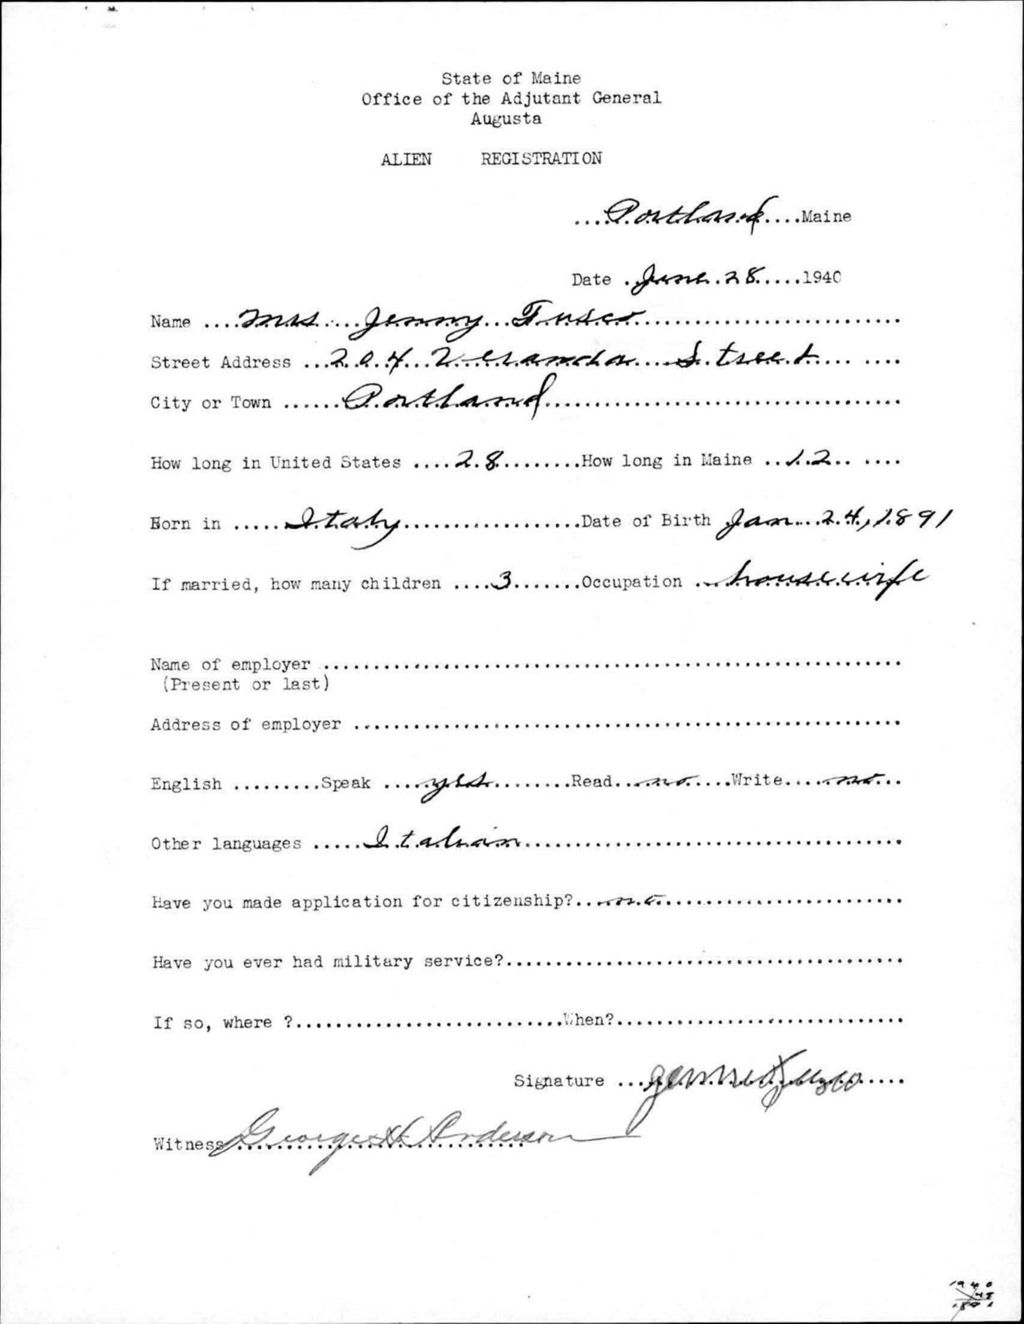 State of Maine
Office of the Adjutant General
Augusta
ALIEN REGISTRATION
...Portland....Maine
Date .June.28.....1940
Name ....Mrs....Jenny...Fusco..............................
Street Address ...204..Veranda....Street.... ....
City or Town ......Portland....................................
How long in United States ....28.........How long in Maine ..12.. ....
Born in .....Italy..................Date of Birth Jan...24,.1891
If married, how many children ....3.......Occupation ..housewife
Name of employer ............................................................
(Present or last)
Address of employer .........................................................
English .........Speak ....yes.........Read...no....Write....no...
Other languages .....Italian.......................................
Have you made application for citizenship?...no.........................
Have you ever had military service?.........................................
If so, where ?............................When?..............................
Signature ...Jennie Fusco.....
Witness George H Anderson
1940
1891